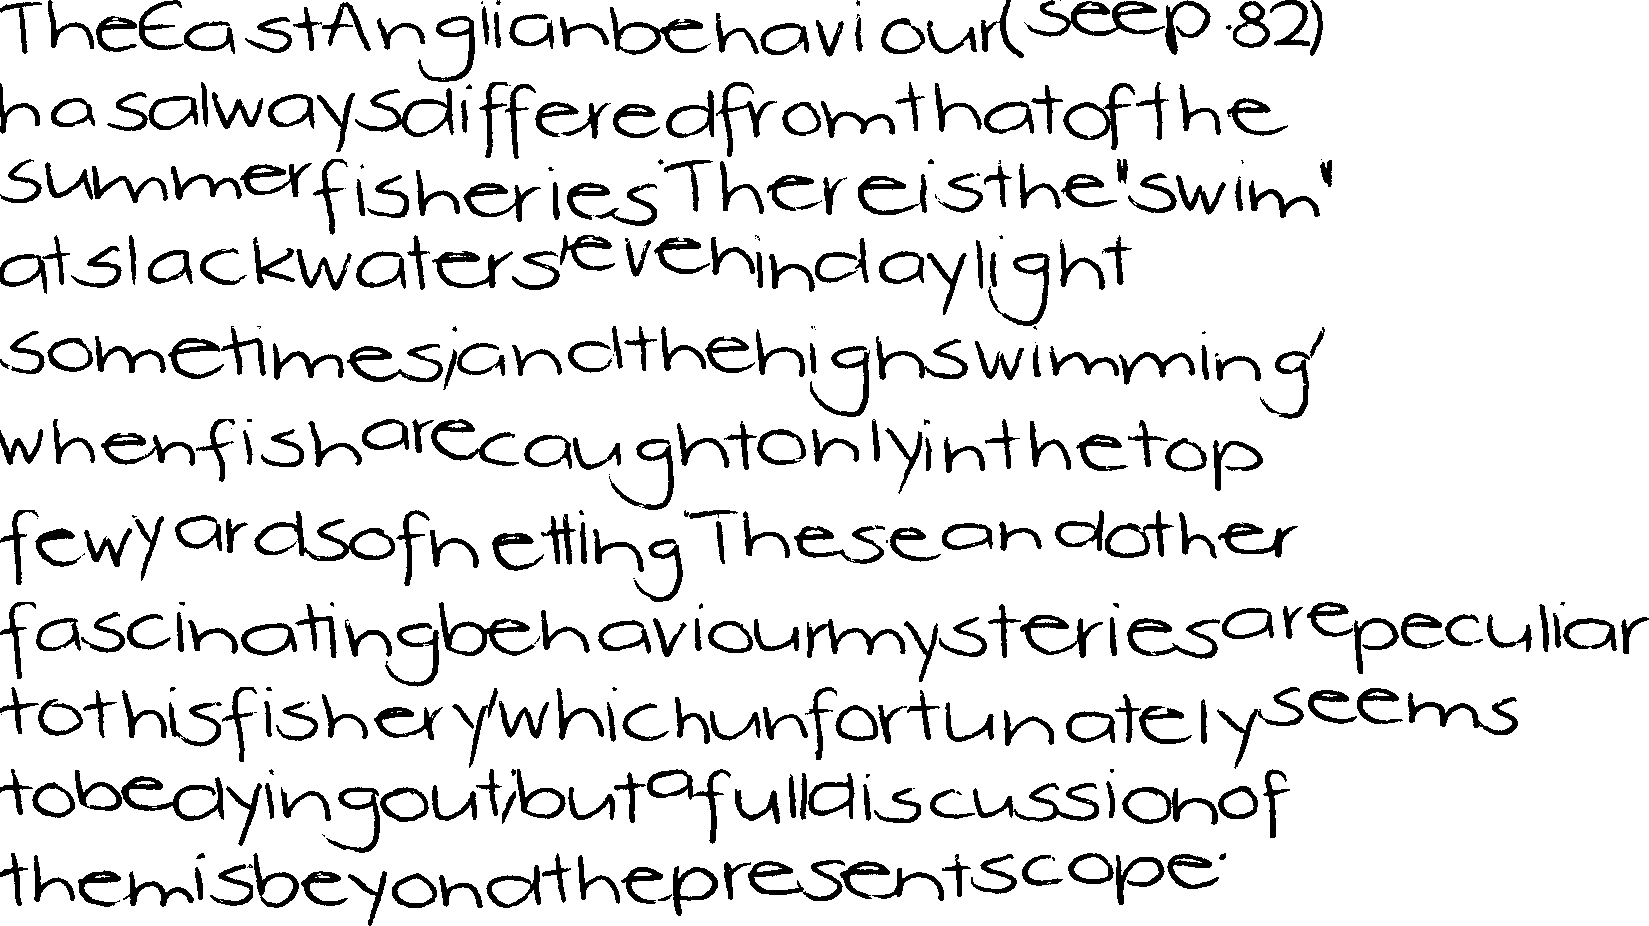 The East Anglian behaviour (see p. 82)
has always differed from that of the
summer fisheries. There is the "swim"
at slack waters, even in daylight
sometimes, and the high swimming,
when fish are caught only in the top
few yards of netting. These and other
fascinating behaviour mysteries are peculiar
to this fishery, which unfortunately seems
to be dying out, but a full discussion of
them is beyond the present scope.